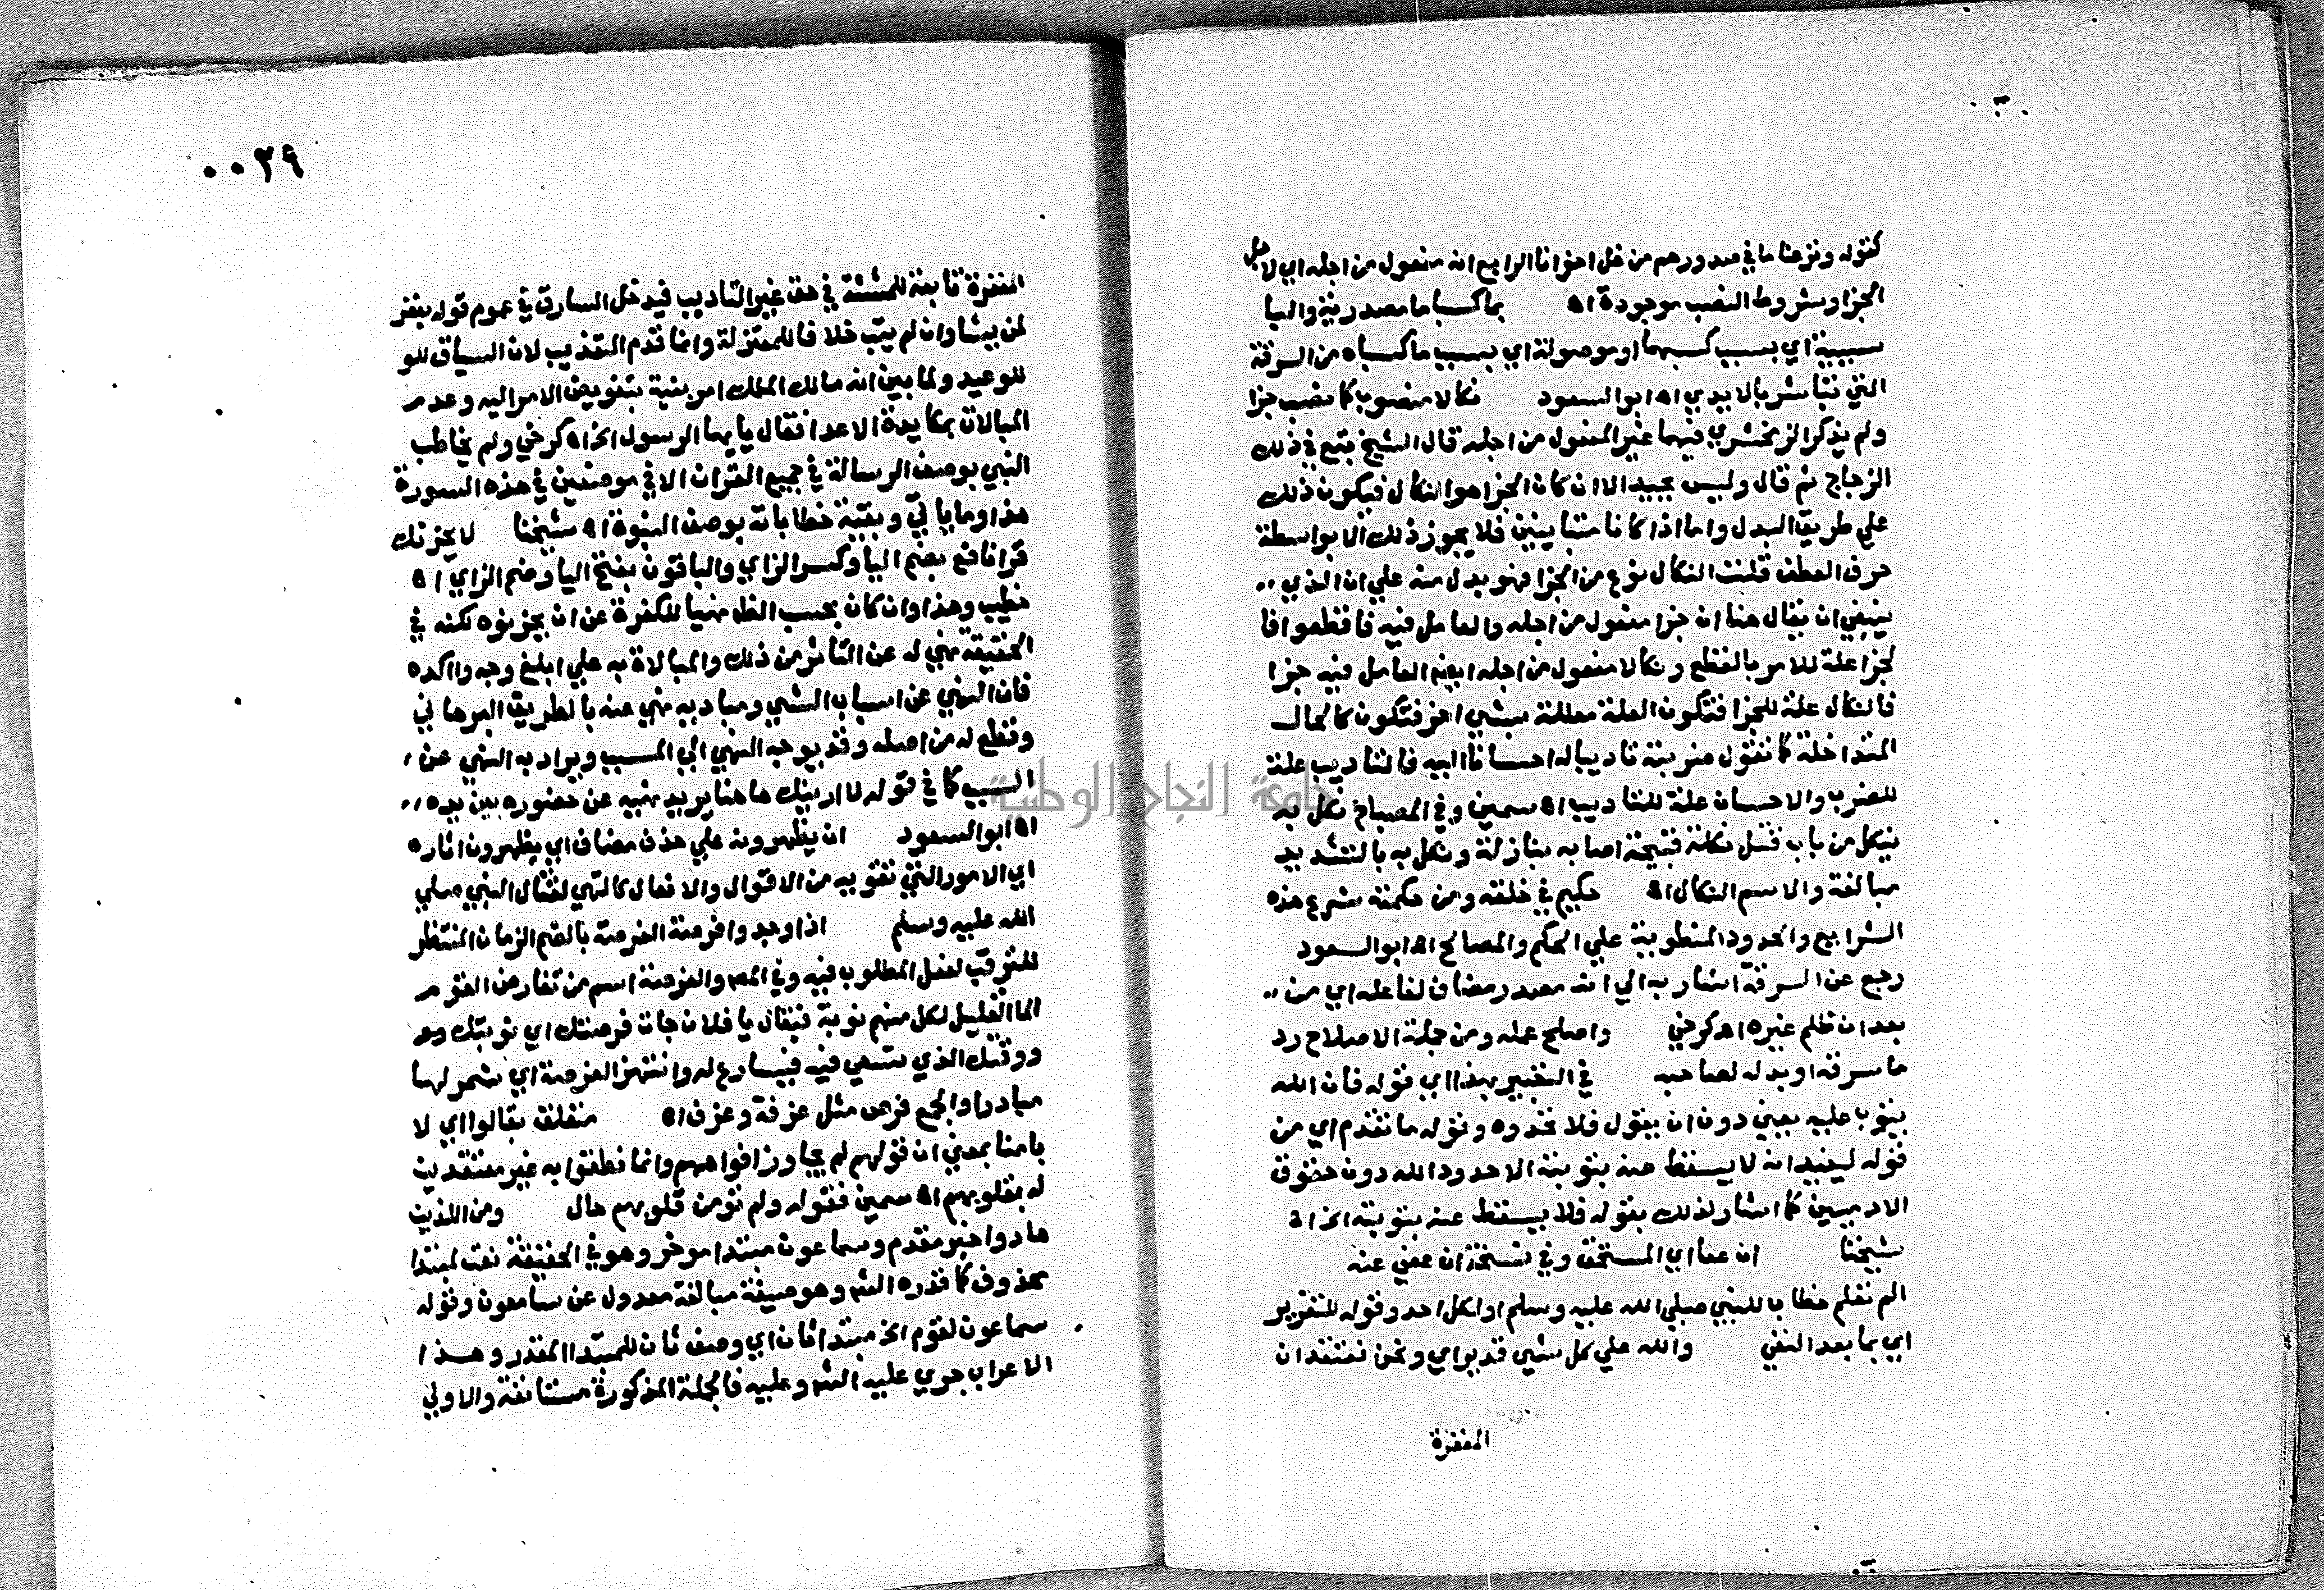 كقوله ونزعنا ما في صدورهم من غل اخوانا الرابع انه مفعول من اجله اي لاجل
الجزا وشروط النصب موجودة اه بما كسبا ما مصدرية والبا
سببية اي بسبب كسبهما او موصولة اي بسبب ما كسباه من السرقة
التي تباشر بالايدي اه ابو السعود نكالا منصوب كما نصب جزا
ولم يذكر الزمخشري فيهما غير المفعول من اجله قال الشيخ تبع في ذلك
الزجاج ثم قال وليس بجيد الا ان كان الجزا هو النكال فيكون ذلك
علي طريق البدل واما اذا كانا متباينين فلا يجوز ذلك الا بواسطة
حرف العطف قلت النكال نوع من الجزا فهو بدل منه علي ان الذي
ينبغي ان يقال هنا ان جزا مفعول من اجله والعامل فيه فاقطعوا فا
لجزا علة للامر بالقطع ونكالا مفعول من اجله ايضا العامل فيه جزا
فالنكال علة للجزا فتكون العلة معللة بشي اخر فتكون كالحال
المتداخلة كما تقول ضربته تاديبا له احسانا اليه فالتاديب علة
للضرب والاحسان علة للتاديب اه سمين وفي المصباح نكل به
ينكل من باب قتل نكلة قبيحة اصابه بنازلة ونكل به بالتشديد
مبالغة والاسم النكال اه حكيم في خلقه ومن حكمته شرع هذه
الشرايع والحدود المنطوية علي الحكم والمصالح اه ابو السعود
رجع عن السرقة اشار به الي انه مصدر مضاف لفاعله اي من
بعد ان ظلم غيره اه كرخي واصلح عمله ومن جملة الاصلاح رد
ما سرقه او بدله لصاحبه في التعبير بهذا اي قوله فان الله
يتوب عليه يعني دون ان يقول فلا تحدوه وقوله ما تقدم اي من
قوله ليفيد انه لا يسقط عنه بتوبته الا حدود الله دون حقوق
الادميين كما اشار لذلك بقوله فلا يسقط عنه بتوبته الخ اه
شيخنا ان عفا اي المستحق وفي نسخة ان عفي عنه
الم تعلم خطاب للنبي صلي الله عليه وسلم او لكل احد وقوله للتقرير
اي بما بعد النفي والله علي كل شي قدير اي ونحن نعتقد ان
المغفرة
٠٠٢٩
المغفرة تابعة للمشئة في حق غير التاديب فيدخل السارق في عموم قوله يغفر
لمن يشا وان لم يتب خلافا للمعتزلة وانما قدم التعذيب لان السياق للو
للوعيد ولما بين انه مالك الملك امر نبيه بتفويض الامر اليه وعدم
المبالاة بمكايدة الاعدا فقال يا يها الرسول الخ اه كرخي ولم يخاطب
النبي بوصف الرسالة في جميع القران الا في موضعين في هذه السورة
هذا وما ياتي وبقية خطاباته بوصف النبوة اه شيخنا لا يحزنك
قرا نافع بضم اليا وكسر الزاي والباقون بفتح اليا وضم الزاي اه
خطيب وهذا وان كان بحسب الظاهر نهيا للكفرة عن ان يحزنوه لكنه في
الحقيقة نهي له عن التاثر من ذلك والمبالاة به علي ابلغ وجه واكده
فان النهي عن اسباب الشي ومباديه نهي عنه بالطريق البرهاني
وقطع له من اصله وقد يوجه النهي الي المسبب ويراد به النهي عن
السبب كما في قوله لا ارينك هاهنا يريد نهيه عن حضوره بين يديه
اه ابو السعود ان يظهرونه علي حذف مضاف اي يظهرون اثاره
اي الامور التي تقويه من الاقوال والافعال كالتهي لقتال النبي صلي
الله عليه وسلم اذا وجدوا فرصة الفرصة بالضم الزمان المنتظر
للترقب لفعل المطلوب فيه وفي المصـ والفرصة اسم من تفارص القوم
الما القليل لكل منهم نوبة فيقال يا فلان جات فرصتك اي نوبتك و
ووقتك الذي تستقي فيه فيسارع له وانتهز الفرصة اي شمر لها
مبادرا والجمع فرص مثل غرفة وغرف اه متعلق بقالوا اي لا
بامنا بمعني ان قولهم لم يجاوز افواههم وانما نطقوا به غير معتقدين
له بقلوبهم اه سمين فقوله ولم تؤمن قلوبهم حال ومن الذين
هادوا خبر مقدم وسماعون مبتدا موخر وهو في الحقيقة نعت لمبتدا
محذوف كما قدره الشـ وهو صيغة مبالغة معدول عن سامعون وقوله
سماعون لقوم الخ مبتدا ثان اي وصف ثان للمبتدا المقدر وهذا
الاعراب جري عليه الشـ وعليه فالجملة المذكورة مستانفة والاولي
جامعة النجاح الوطنية